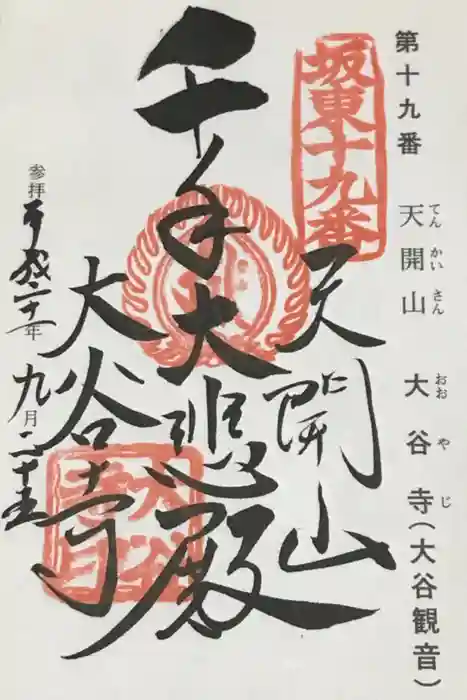 第十九番 天開山 大谷寺(大谷観音)
てんかいさん おおやじ
坂東十九番
天開山
千手大悲殿
大谷寺
参拝 平成二十年 九月二十五